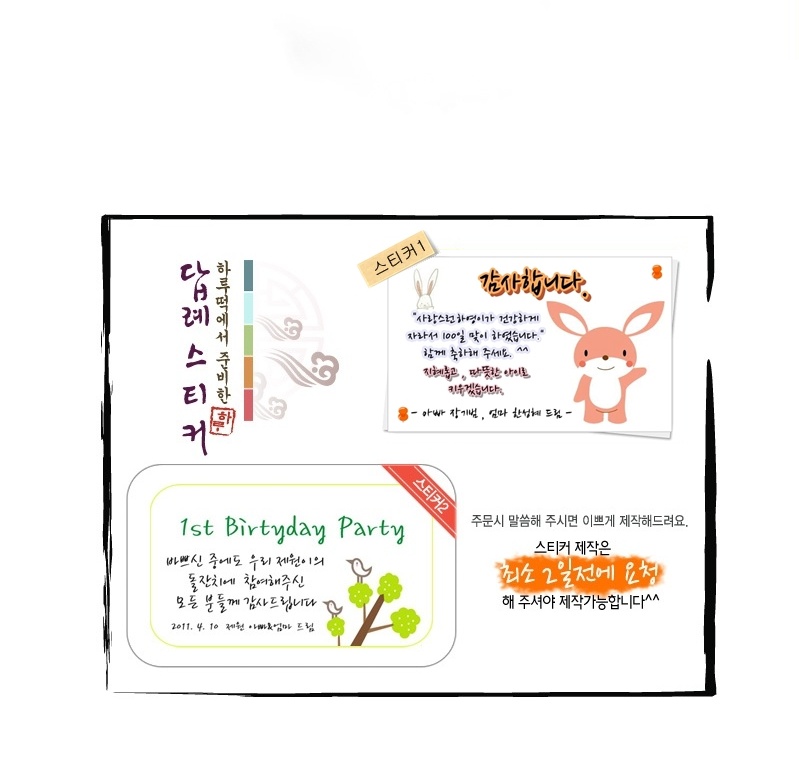 하루떡에서 준비한
답례스티커
하루
스티커1
감사합니다.
"사랑스런하영이가 건강하게
자라서 100일 맞이 하였습니다."
함께 축하해 주세요. ^^
지혜롭고, 따뜻한 아이로
키우겠습니다.
- 아빠 장기범, 엄마 한성혜 드림 -
스티커2
1st Birtyday Party
바쁘신 중에도 우리 제원이의
돌잔치에 참여해주신
모든 분들께 감사드립니다
2011. 4. 10 제원 아빠&엄마 드림
주문시 말씀해 주시면 이쁘게 제작해드려요.
스티커 제작은
최소 2일전에 요청
해 주셔야 제작가능합니다^^